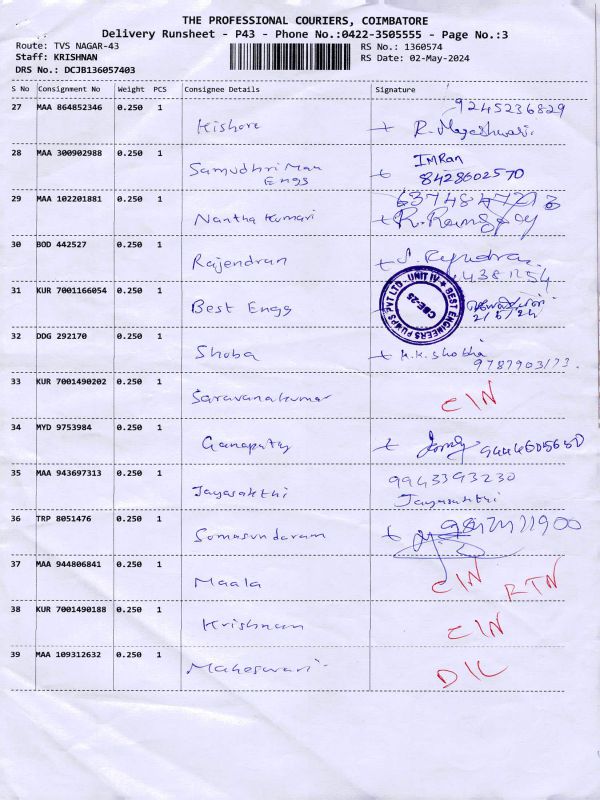 THE PROFESSIONAL COURIERS, COIMBATORE
Delivery Runsheet - P43 - Phone No.:0422-3505555 - Page No.:3
Route: TVS NAGAR-43
Staff: KRISHNAN
DRS No.: DCJB136057403
RS No.: 1360574
RS Date: 02-May-2024
S No Consignment No Weight PCS Consignee Details Signature
9245236829
27 MAA 864852346 0.250 1 Kishore R. Mageshwari
28 MAA 300902988 0.250 1 Samudhri Man
Engs
IMRan
8428602570
29 MAA 102201881 0.250 1 Nantha Kumari
30 BOD 442527 0.250 1 Rajendran
31 KUR 7001166054 0.250 1 Best Engg
BEST ENGINEERS PUMPS PVT LTD. UNIT IV
CBE-25
2/5/24
32 DDG 292170 0.250 1 Shoba K.K. Shobha
33 KUR 7001490202 0.250 1 Saravanakumar CIN
34 MYD 9753984 0.250 1 Ganapathy
35 MAA 943697313 0.250 1 Jayasakthi
9943393230
Jayasakthi
36 TRP 8051476 0.250 1 Somasundaram
37 MAA 944806841 0.250 1 Maala CIN RTN
38 KUR 7001490188 0.250 1 Krishnan CIN
39 MAA 109312632 0.250 1 Maheswari DIL